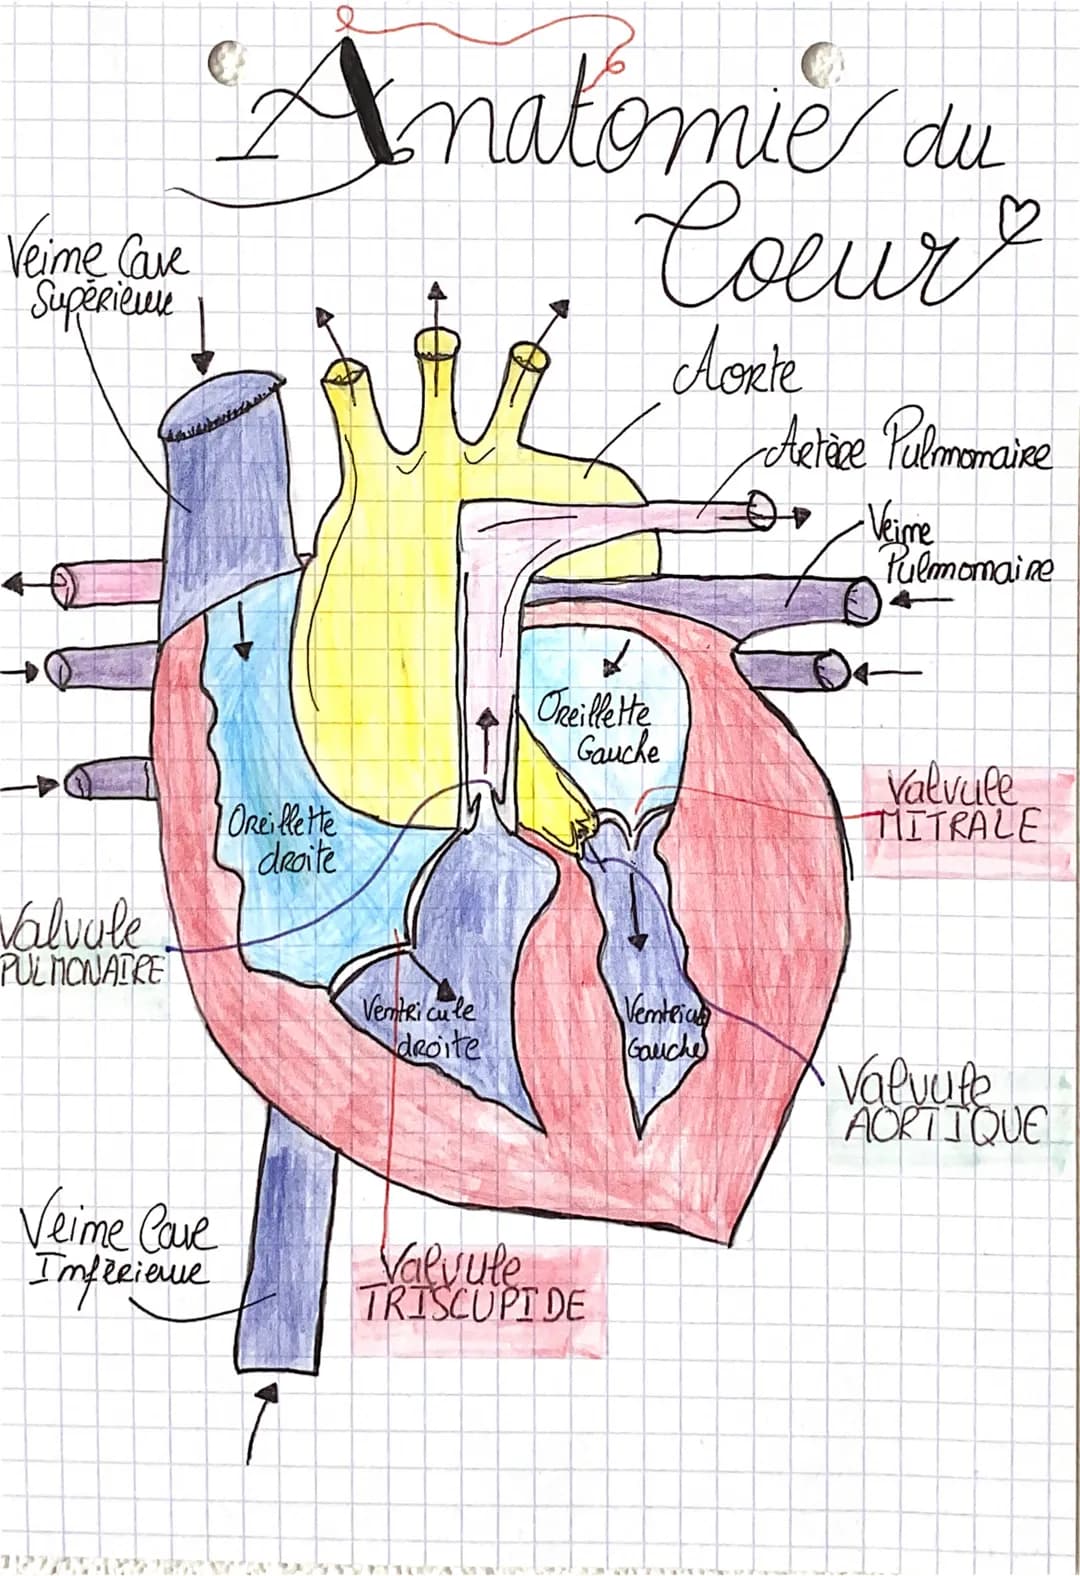 Anatomie du
Coeur
Veine Cave
Supérieure
Aorte
Artère Pulmonaire
Veine
Pulmonaire
Oreillette
Gauche
Valvule
MITRALE
Oreillette
droite
Valvule
PULMONAIRE
Ventricule
droite
Ventricule
Gauche
Valvule
AORTIQUE
Veine Cave
Inférieure
Valvule
TRISCUPIDE